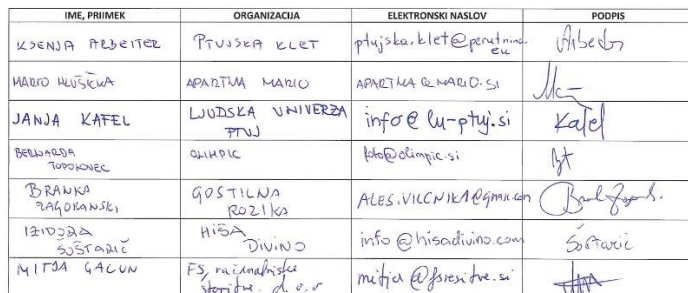 IME, PRIIMEK ORGANIZACIJA ELEKTRONSKI NASLOV PODPIS
KSENJA ARBEITER PTUJSKA KLET ptujska.klet@perutnina.eu Arbeiter
MARIO HLUŠIČKA APARTMA MARIO APARTMA@MARIO.SI
JANJA KAFEL LJUDSKA UNIVERZA PTUJ info@lu-ptuj.si Kafel
BERNARDA TOPOLOVEC OLIMPIC foto@olimpic.si
BRANKA ZAGORANSKI GOSTILNA ROZIKA ALES.VILCNIK1@gmail.com
IZIDORA ŠOŠTARIČ HIŠA DIVINO info@hisadivino.com Šoštarič
MITJA GAČUN FS, računalniške storitve d.o.o mitja@fsresitve.si